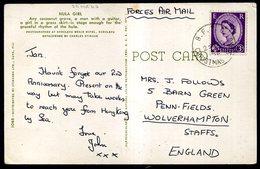 HULA GIRL
Any coconut grove, a man with a guitar,
a girl in a grass skirt... a stage enough for the
graceful rhythm of the hula.
FORCES AIR MAIL
POST CARD
Jan.
Haven't forgot our 2nd
Anniversary. Present on the
way but may take weeks
to reach you from Hongkong
by Sea.
Love
John
xxx
MRS. J. FOLLOWS
5 BARN GREEN
PENN-FIELDS.
WOLVERHAMPTON
STAFFS.
ENGLAND